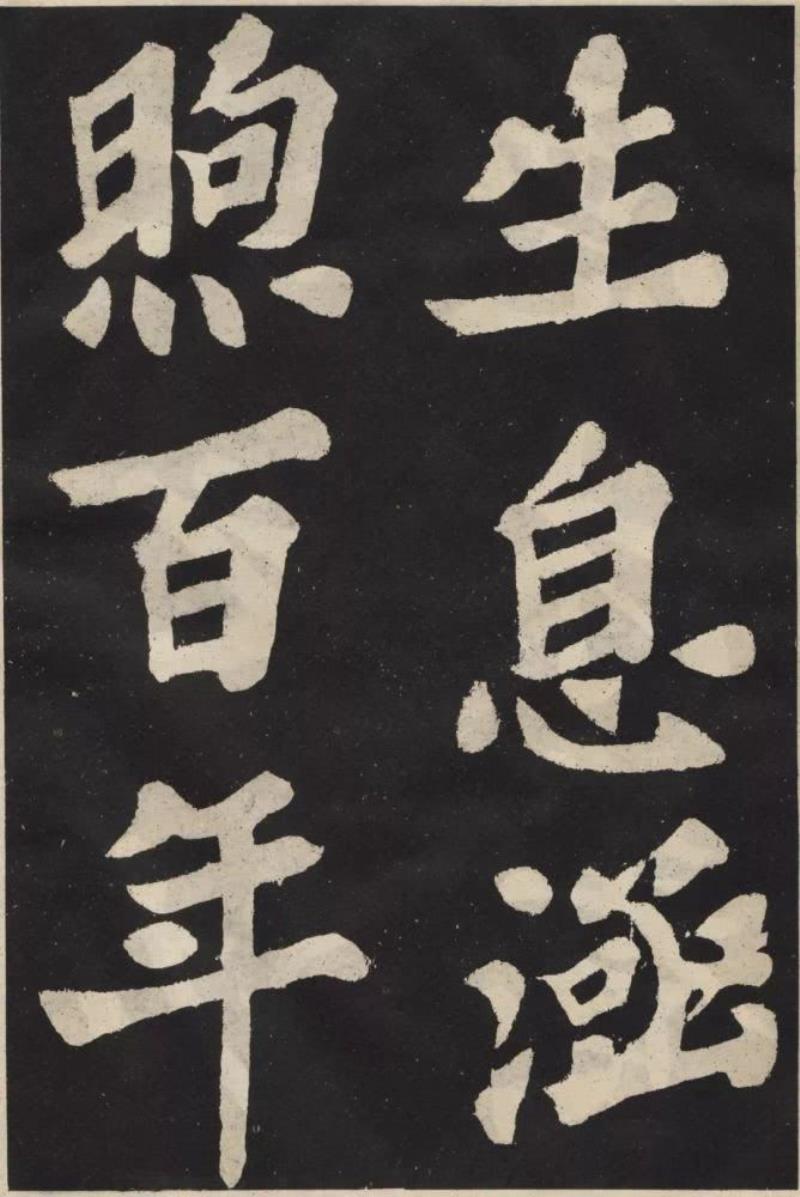 生息涵
煦百年